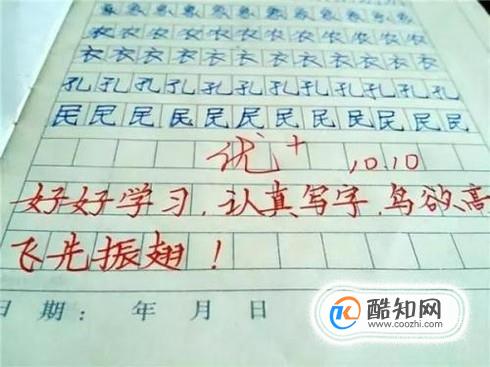 象象象象象象象象象象象象象
农农农农农农农农农农农农农
衣衣衣衣衣衣衣衣衣衣衣衣衣
孔孔孔孔孔孔孔孔孔孔孔孔孔
民民民民民民民民民民民民
优+ 10.10
好好学习,认真写字,鸟欲高
飞先振翅!
日期: 年 月 日
酷知网
www.coozhi.com